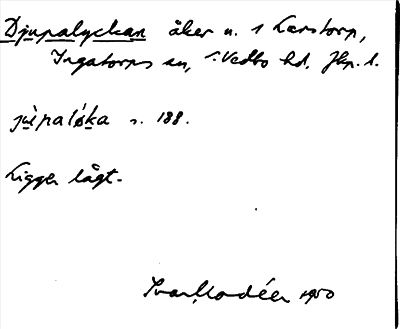 Djupalyckan åker n. 1 Karstorp,
Ingatorps sn, S. Vedbo hd. Jkp. l.
jùpaløka s. 188.
Ligger lågt.
Ivar Modéer 1950